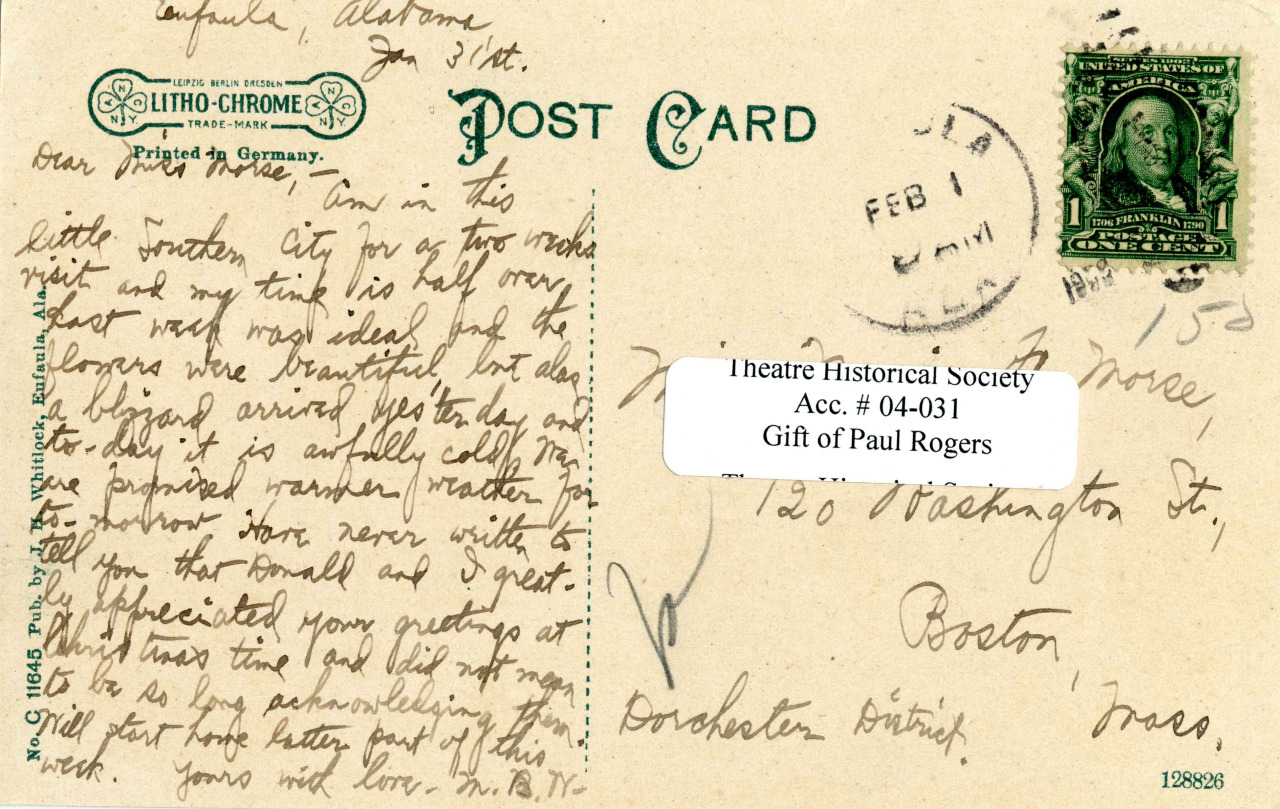 Eufaula, Alabama
Jan 31st.
LEIPZIG BERLIN DRESDEN
LITHO-CHROME
TRADE-MARK
Printed in Germany.
POST CARD
Dear Miss Morse,—
Am in this
little Southern City for a two weeks
visit and my time is half over.
Last week was ideal and the
flowers were beautiful, but alas
a blizzard arrived yesterday and
to-day it is awfully cold. We
are promised warmer weather for
to-morrow. Have never written to
tell you that Donald and I great-
ly appreciated your greetings at
Christmas time and did not mean
to be so long acknowledging them.
Will start home latter part of this
week. Yours with love - M. B. W-
No. C 11645 Pub. by J. H. Whitlock, Eufaula, Ala.
ULA
FEB 1
ALA
SERIES 1902
UNITED STATES OF
AMERICA
1 1706 FRANKLIN 1790 1
POSTAGE
ONE CENT
15
Morse,
Theatre Historical Society
Acc. # 04-031
Gift of Paul Rogers
120 Washington St.,
Boston,
Dorchester District. Mass.
128826